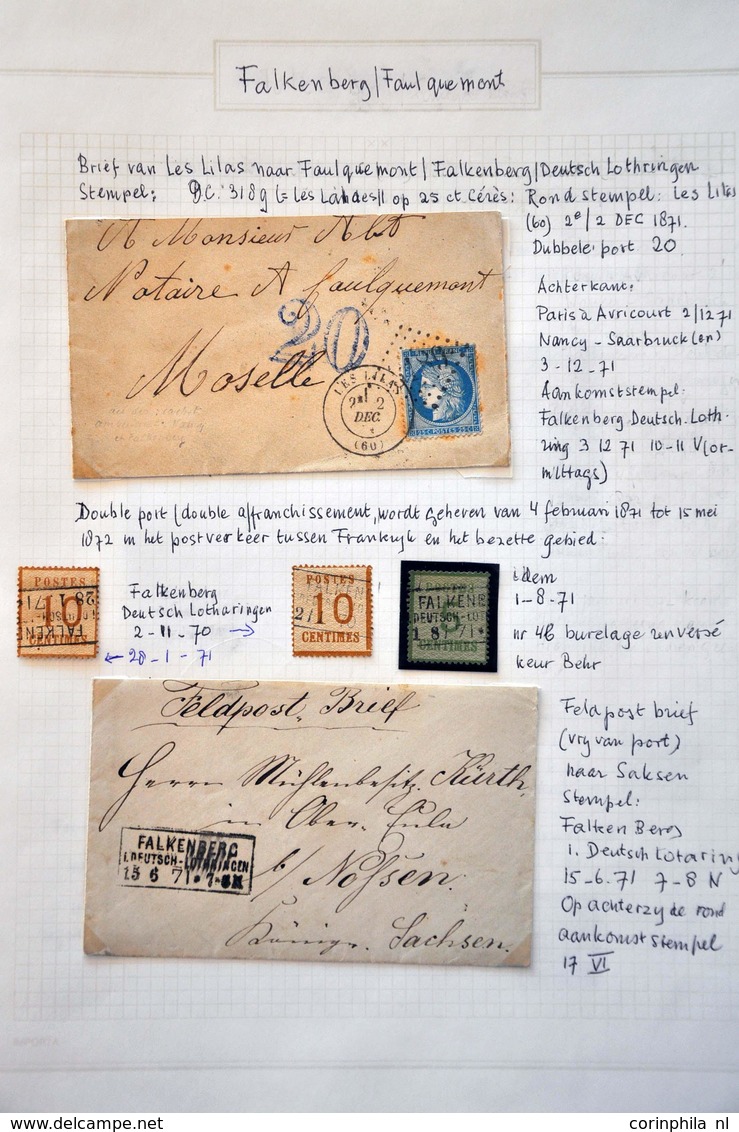 Falkenberg/Faulquemont
Brief van Les Lilas naar Faulquemont/Falkenberg/Deutsch Lothringen
Stempel: GC. 3189 (= Les Landes) op 25 ct. Cérès: Rond stempel: Les Lilas
(60) 2e/2 DEC 1871.
Dubbele port 20.
A Monsieur Abt
Notaire A faulquemont
20
Moselle
LES LILAS
2E 2
DEC
(60)
25 C. POSTES 25 C.
Achterkant:
Paris à Avricourt 2/12 71
Nancy - Saarbruck(en)
3-12-71
Aankomststempel.
Falkenberg Deutsch. Loth-
ring 3 12 71 10-11 V(or-
mittags)
Double port (double affranchissement, wordt geheven van 4 februari 1871 tot 15 mei
1872 in het postverkeer tussen Frankrijk en het bezette gebied:
POSTES
10
28 1 71
FALKEN
Falkenberg
Deutsch Lotharingen
2-11-70 →
← 28-1-71
POSTES
10
CENTIMES
FALKENB
DEUTSCH-LO
1 8 71
idem
1-8-71
nr 4B burelage renversé
keur Behr
Feldpost Brief
Herrn Mühlenbesitz. Kürth,
in Ober-Eula
b/ Nossen.
Königr. Sachsen.
FALKENBERG
I. DEUTSCH-LOTHRINGEN
15 6 71 * 7-8N
Feldpost brief
(vrij van port)
naar Saksen
Stempel:
Falken Berg
i. Deutsch Lotaring
15-6.71 7-8 N
Op achterzijde rond
aankomststempel
17 VI
IMPORTA
www.delcampe.net
corinphila nl